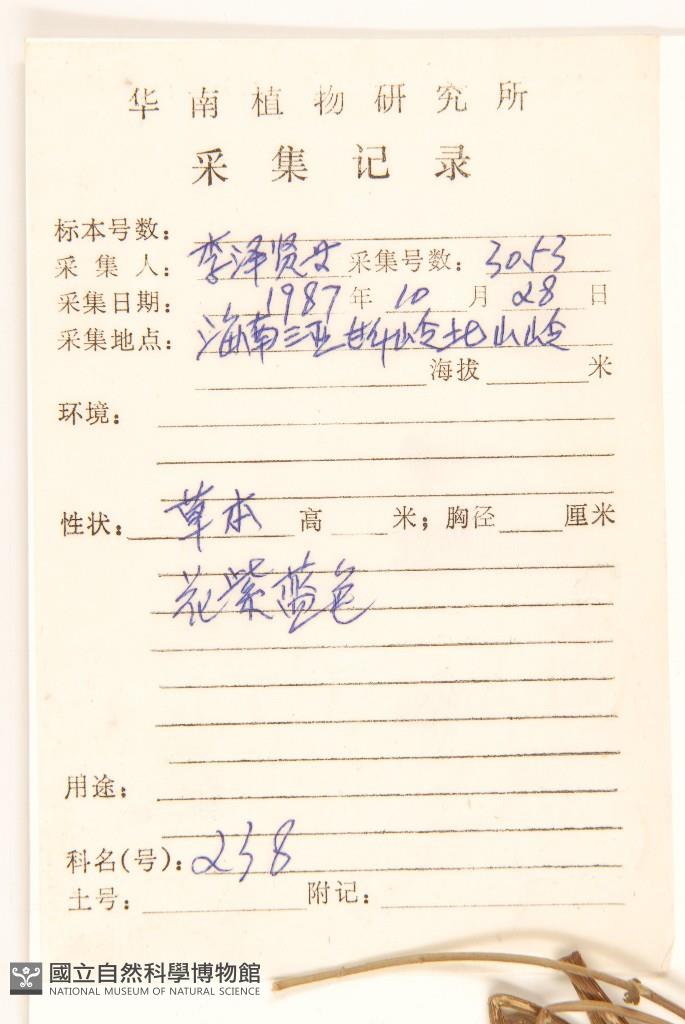 华南植物研究所
采集记录
标本号数:
采集人: 李泽贤 采集号数: 3053
采集日期: 1987年10月28日
采集地点: 海南三亚甘什岭北山岭
海拔 米
环境:
性状: 草本 高 米; 胸径 厘米
花紫蓝色
用途:
科名(号): 238
土号: 附记:
國立自然科學博物館
NATIONAL MUSEUM OF NATURAL SCIENCE